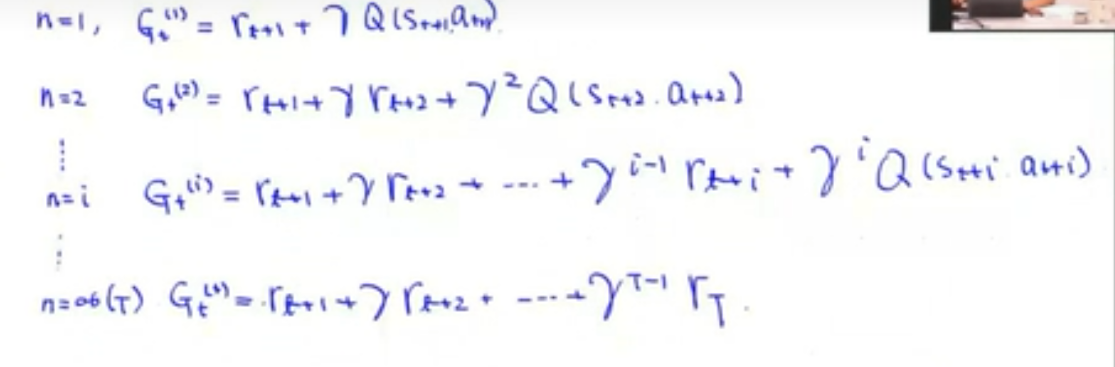 n=1, Gₜ⁽¹⁾ = rₜ₊₁ + γ Q(sₜ₊₁, aₜ₊₁).
n=2 Gₜ⁽²⁾ = rₜ₊₁ + γ rₜ₊₂ + γ² Q(sₜ₊₂, aₜ₊₂)
⋮
n=i Gₜ⁽ⁱ⁾ = rₜ₊₁ + γ rₜ₊₂ + ... + γⁱ⁻¹ rₜ₊ᵢ + γⁱ Q(sₜ₊ᵢ, aₜ₊ᵢ)
⋮
n=∞(T) Gₜ = rₜ₊₁ + γ rₜ₊₂ + ... + γᵀ⁻¹ r_T.